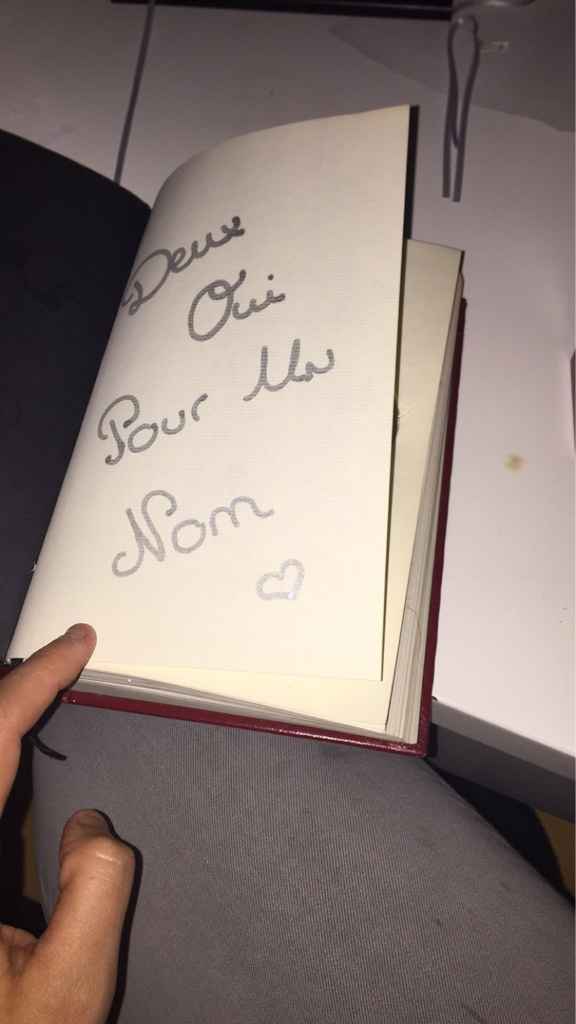 Deux
Oui
Pour Un
Nom